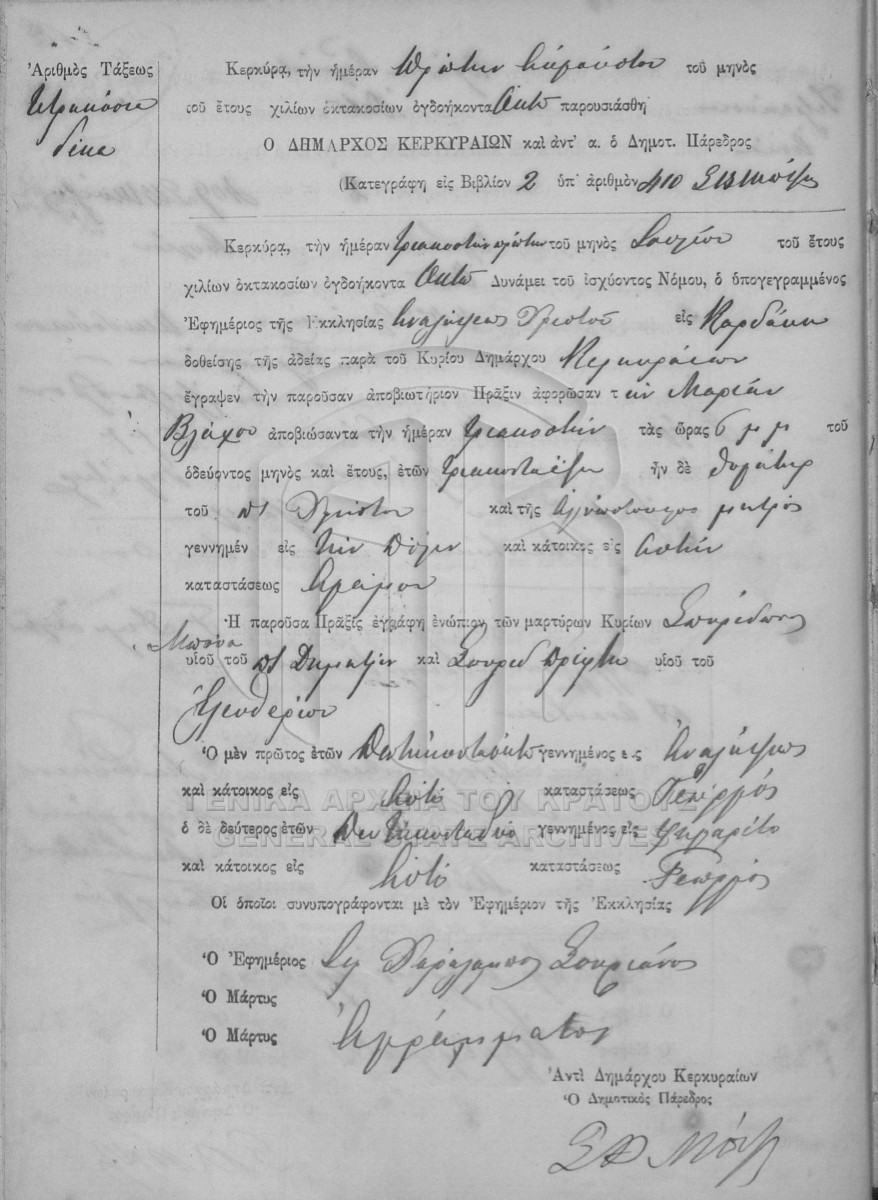 Ἀριθμὸς Τάξεως
Τετρακόσια
δέκα
Κερκύρα, τὴν ἡμέραν πρώτην Αὐγούστου τοῦ μηνὸς
τοῦ ἔτους χιλίων ὀκτακοσίων ὀγδοήκοντα Ὀκτὼ παρουσιάσθη
Ο ΔΗΜΑΡΧΟΣ ΚΕΡΚΥΡΑΙΩΝ καὶ ἀντ' α. ὁ Δημοτ. Πάρεδρος
(Κατεγράφη εἰς Βιβλίον 2 ὑπ' ἀριθμὸν 410
Κερκύρα, τὴν ἡμέραν τριακοστὴν πρώτην τοῦ μηνὸς Ἰουλίου τοῦ ἔτους
χιλίων ὀκτακοσίων ὀγδοήκοντα Ὀκτὼ Δυνάμει τοῦ ἰσχύοντος Νόμου, ὁ ὑπογεγραμμένος
Ἐφημέριος τῆς Ἐκκλησίας Ἀναλήψεως Χριστοῦ εἰς
δοθείσης τῆς ἀδείας παρὰ τοῦ Κυρίου Δημάρχου Κερκυραίων
ἔγραψεν τὴν παροῦσαν ἀποβιωτήριον Πρᾶξιν ἀφορῶσαν τ ὴν Μαρίαν
Βλάχου ἀποβιώσαντα τὴν ἡμέραν τριακοστὴν τὰς ὥρας 6 μ μ τοῦ
ὁδεύοντος μηνὸς καὶ ἔτους, ἐτῶν τριακονταὲξ ἦν δὲ θυγάτηρ
τοῦ π Χρήστου καὶ τῆς ἀγνώστου μητρός
γεννημέν εἰς τὴν Πόλιν καὶ κάτοικος εἰς αὐτὴν
καταστάσεως Ἄγαμου
Ἡ παροῦσα Πρᾶξις ἐγράφη ἐνώπιον τῶν μαρτύρων Κυρίων Σπυρίδωνος
υἱοῦ τοῦ π Δημητρίου καὶ Σπυρίδ υἱοῦ τοῦ
Ἐλευθερίου
Ὁ μὲν πρῶτος ἐτῶν Πεντηκονταοκτὼ γεννημένος εἰς Ἀναλήψεως
καὶ κάτοικος εἰς καταστάσεως Γεωργός
ΓΕΝΙΚΑ ΑΡΧΕΙΑ ΤΟΥ ΚΡΑΤΟΥΣ
ὁ δὲ δεύτερος ἐτῶν Πεντηκονταδύο γεννημένος εἰς
GENERAL STATE ARCHIVES
καὶ κάτοικος εἰς καταστάσεως Γεωργός
Οἱ ὁποῖοι συνυπογράφονται μὲ τὸν Ἐφημέριον τῆς Ἐκκλησίας
Ὁ Ἐφημέριος Χαράλαμπος
Ὁ Μάρτυς
Ὁ Μάρτυς Ἀγράμματοι
Ἀντὶ Δημάρχου Κερκυραίων
Ὁ Δημοτικὸς Πάρεδρος